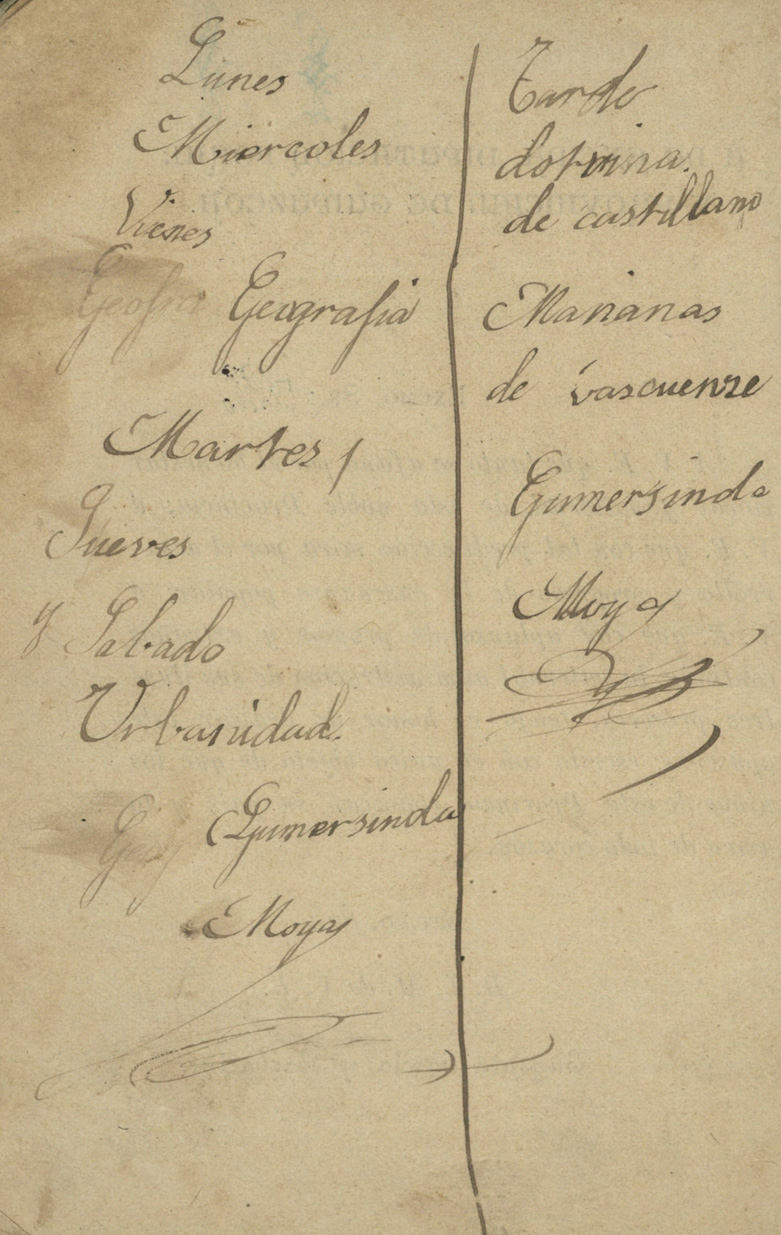 Lunes
Miercoles
Vienes
Geogra Geografia
Martes,
Jueves
y Sabado
Urbanidad.
Geog Gumersinda
Moya
Tarde
dotrina.
de castillano
Mananas
de vascuenze
Gumersinda
Moya